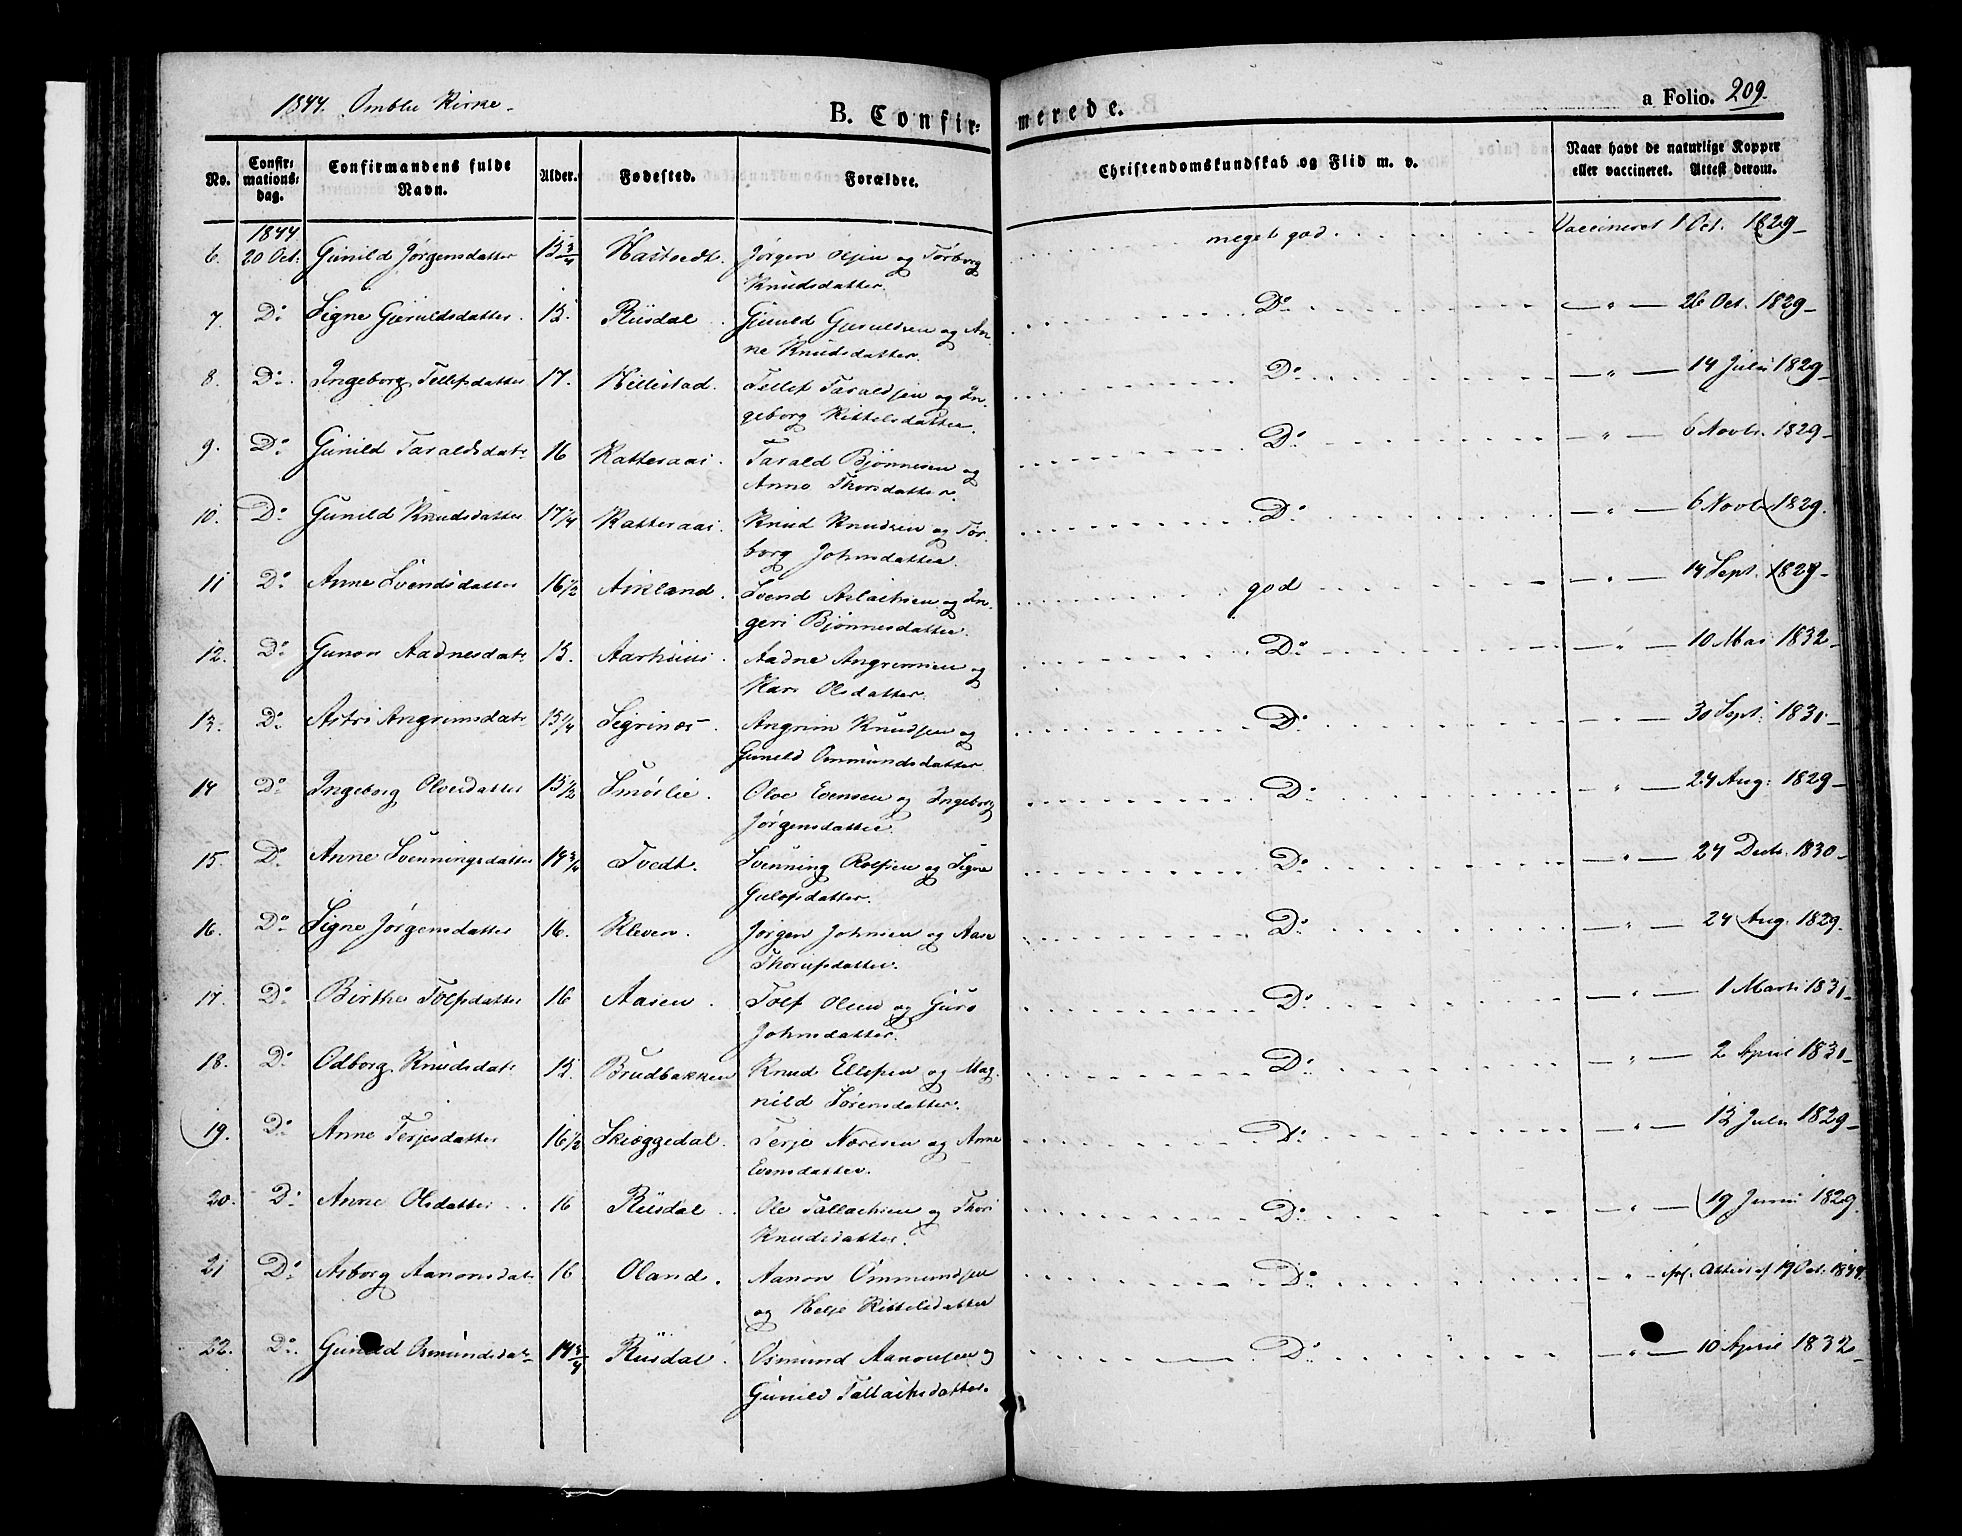 1844. Omblie Kirke.
B. Confirmerede.
a Folio. 209.
No. | Confirmationsdag. | Confirmandens fulde Navn. | Alder. | Fødested. | Forældre. | Christendomskundskab og Flid m. v. | Naar havt de naturlige Kopper eller vaccineret. Attest derom.
6. | 1844 20 Oct: | Gunild Jørgensdatter | 15 3/4 | Hastvedt. | Jørgen Olsen og Torborg
Knudsdatter. | meget god. | Vaccineret 1 Oct. 1829
7. | Do | Signe Gjeruldsdatter. | 15. | Riisdal. | Gjeruld Gjeruldsen og An-
ne Knudsdatter. | Do | " 26 Oct. 1829
8. | Do | Ingeborg Tellefsdatter | 17. | Hillestad. | Tellef Taraldsen og In-
geborg Kittelsdatter. | Do | " 14 Juli 1829
9. | Do | Gunild Taraldsdatr | 16 | Katteraas. | Tarald Bjønnesen og
Anne Thorsdatter. | Do | " 6 Novbr. 1829
10. | Do | Gunild Knudsdatter | 17 1/4 | Katteraas. | Knud Knudsen og Tor-
borg Johnsdatter. | Do | " 6 Novbr 1829.
11 | Do | Anne Svendsdatter | 16 1/2 | Askland. | Svend Aslachsen og In-
geri Bjønnesdatter. | god | " 14 Sept. 1829
12. | Do | Gunvor Aadnesdatr | 15. | Aarhuus. | Aadne Angrimsen og
Kari Olsdatter. | Do | " 10 Mai 1832
13. | Do | Astri Angrimsdatr | 15 1/4 | Segrinæs. | Angrim Knudsen og
Guneld Ommundsdatter | Do | " 30 Sept: 1831
14 | Do | Ingeborg Olvesdatter | 15 1/2 | Smøslie. | Olve Evensen og Ingeborg
Jørgensdatter. | Do | " 24 Aug: 1829
15. | Do | Anne Svenningsdatter | 14 3/4 | Tvedt. | Svenning Rolfsen og Signe
Gulofsdatter. | Do | " 24 Decb. 1830
16. | Do | Signe Jørgensdatter | 16. | Kleven. | Jørgen Johnsen og Aase
Thorufsdatter. | Do | " 24 Aug. 1829.
17. | Do | Birthe Tolfsdatter | 16 | Aasen. | Tolf Olsen og Guro
Johnsdatter. | Do | " 1 Marts 1831
18. | Do | Odborg Knudsdatr | 15. | Brudbakken | Knud Ellefsen og Mag-
nild Sørensdatter. | Do | " 2 April 1831
19. | Do | Anne Terjesdatter | 16 1/2 | Skiæggedal. | Terje Noresen og Anne
Evensdatter. | Do | " 13 Juli 1829
20. | Do | Anne Olsdatter | 16 | Riisdal. | Ole Tallachsen og Thori
Knudsdatter. | Do | " 19 Junii 1829.
21 | Do | Asborg Aanonsdatr | 16 | Oland. | Aanon Ommundsen
og Helje Kittelsdatter | Do | " Attest af 19 Oct. 1844.
22. | Do | Gunild Osmundsdatr | 14 3/4 | Riisdal. | Osmund Aanonsen og
Gunild Tallachsdatter. | Do | " 10 April 1832